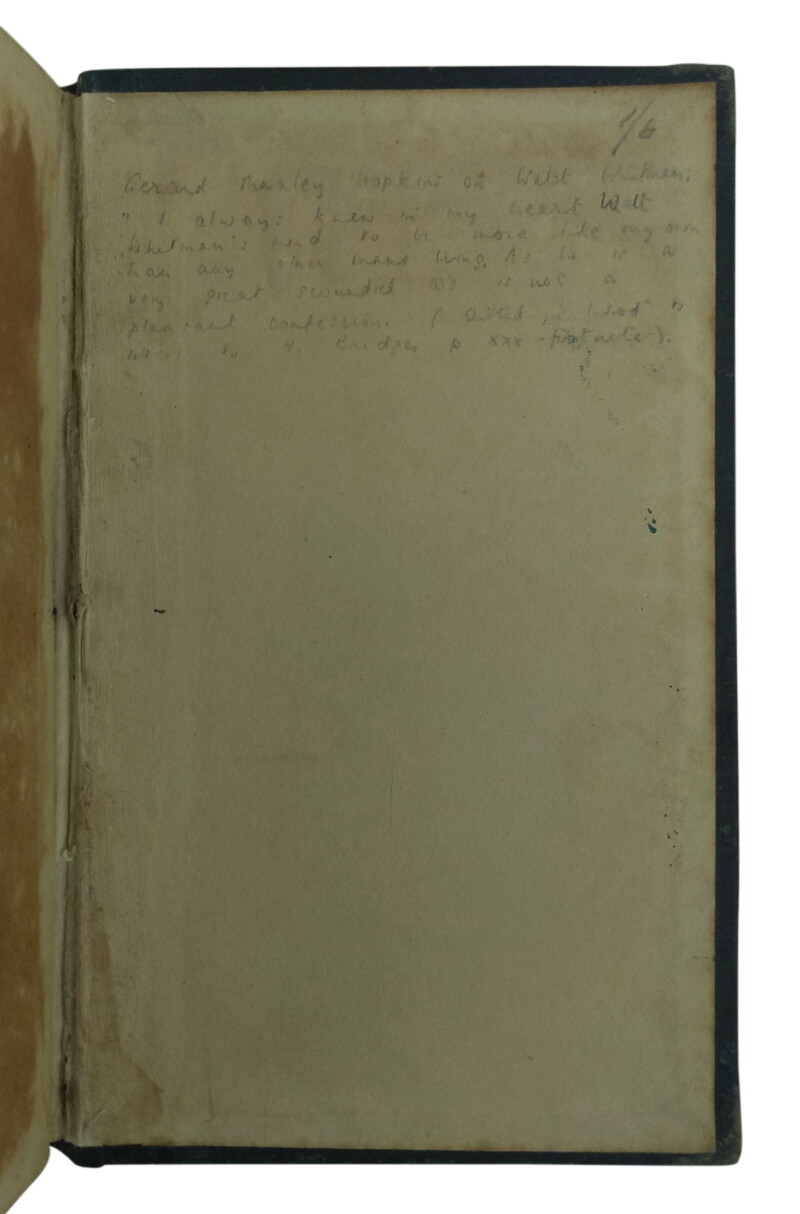 1/6
Gerard Manley Hopkins on Walt Whitman:
" I always knew in my heart Walt
Whitman's mind to be more like my own
than any other man's living. As he is a
very great scoundrel this is not a
pleasant confession. ( Quoted in Introd" to
to R. Bridges p xxx footnote ).